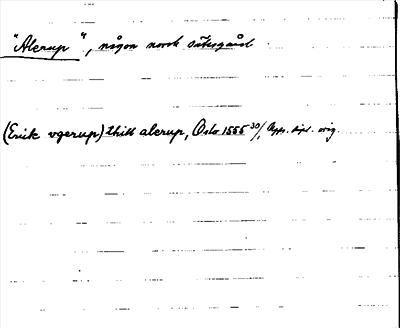 "Alerup", någon norsk sätesgård
(Erik vgerup) thill alerup, Oslo 1555 30/1 Rapp. dipl. orig.